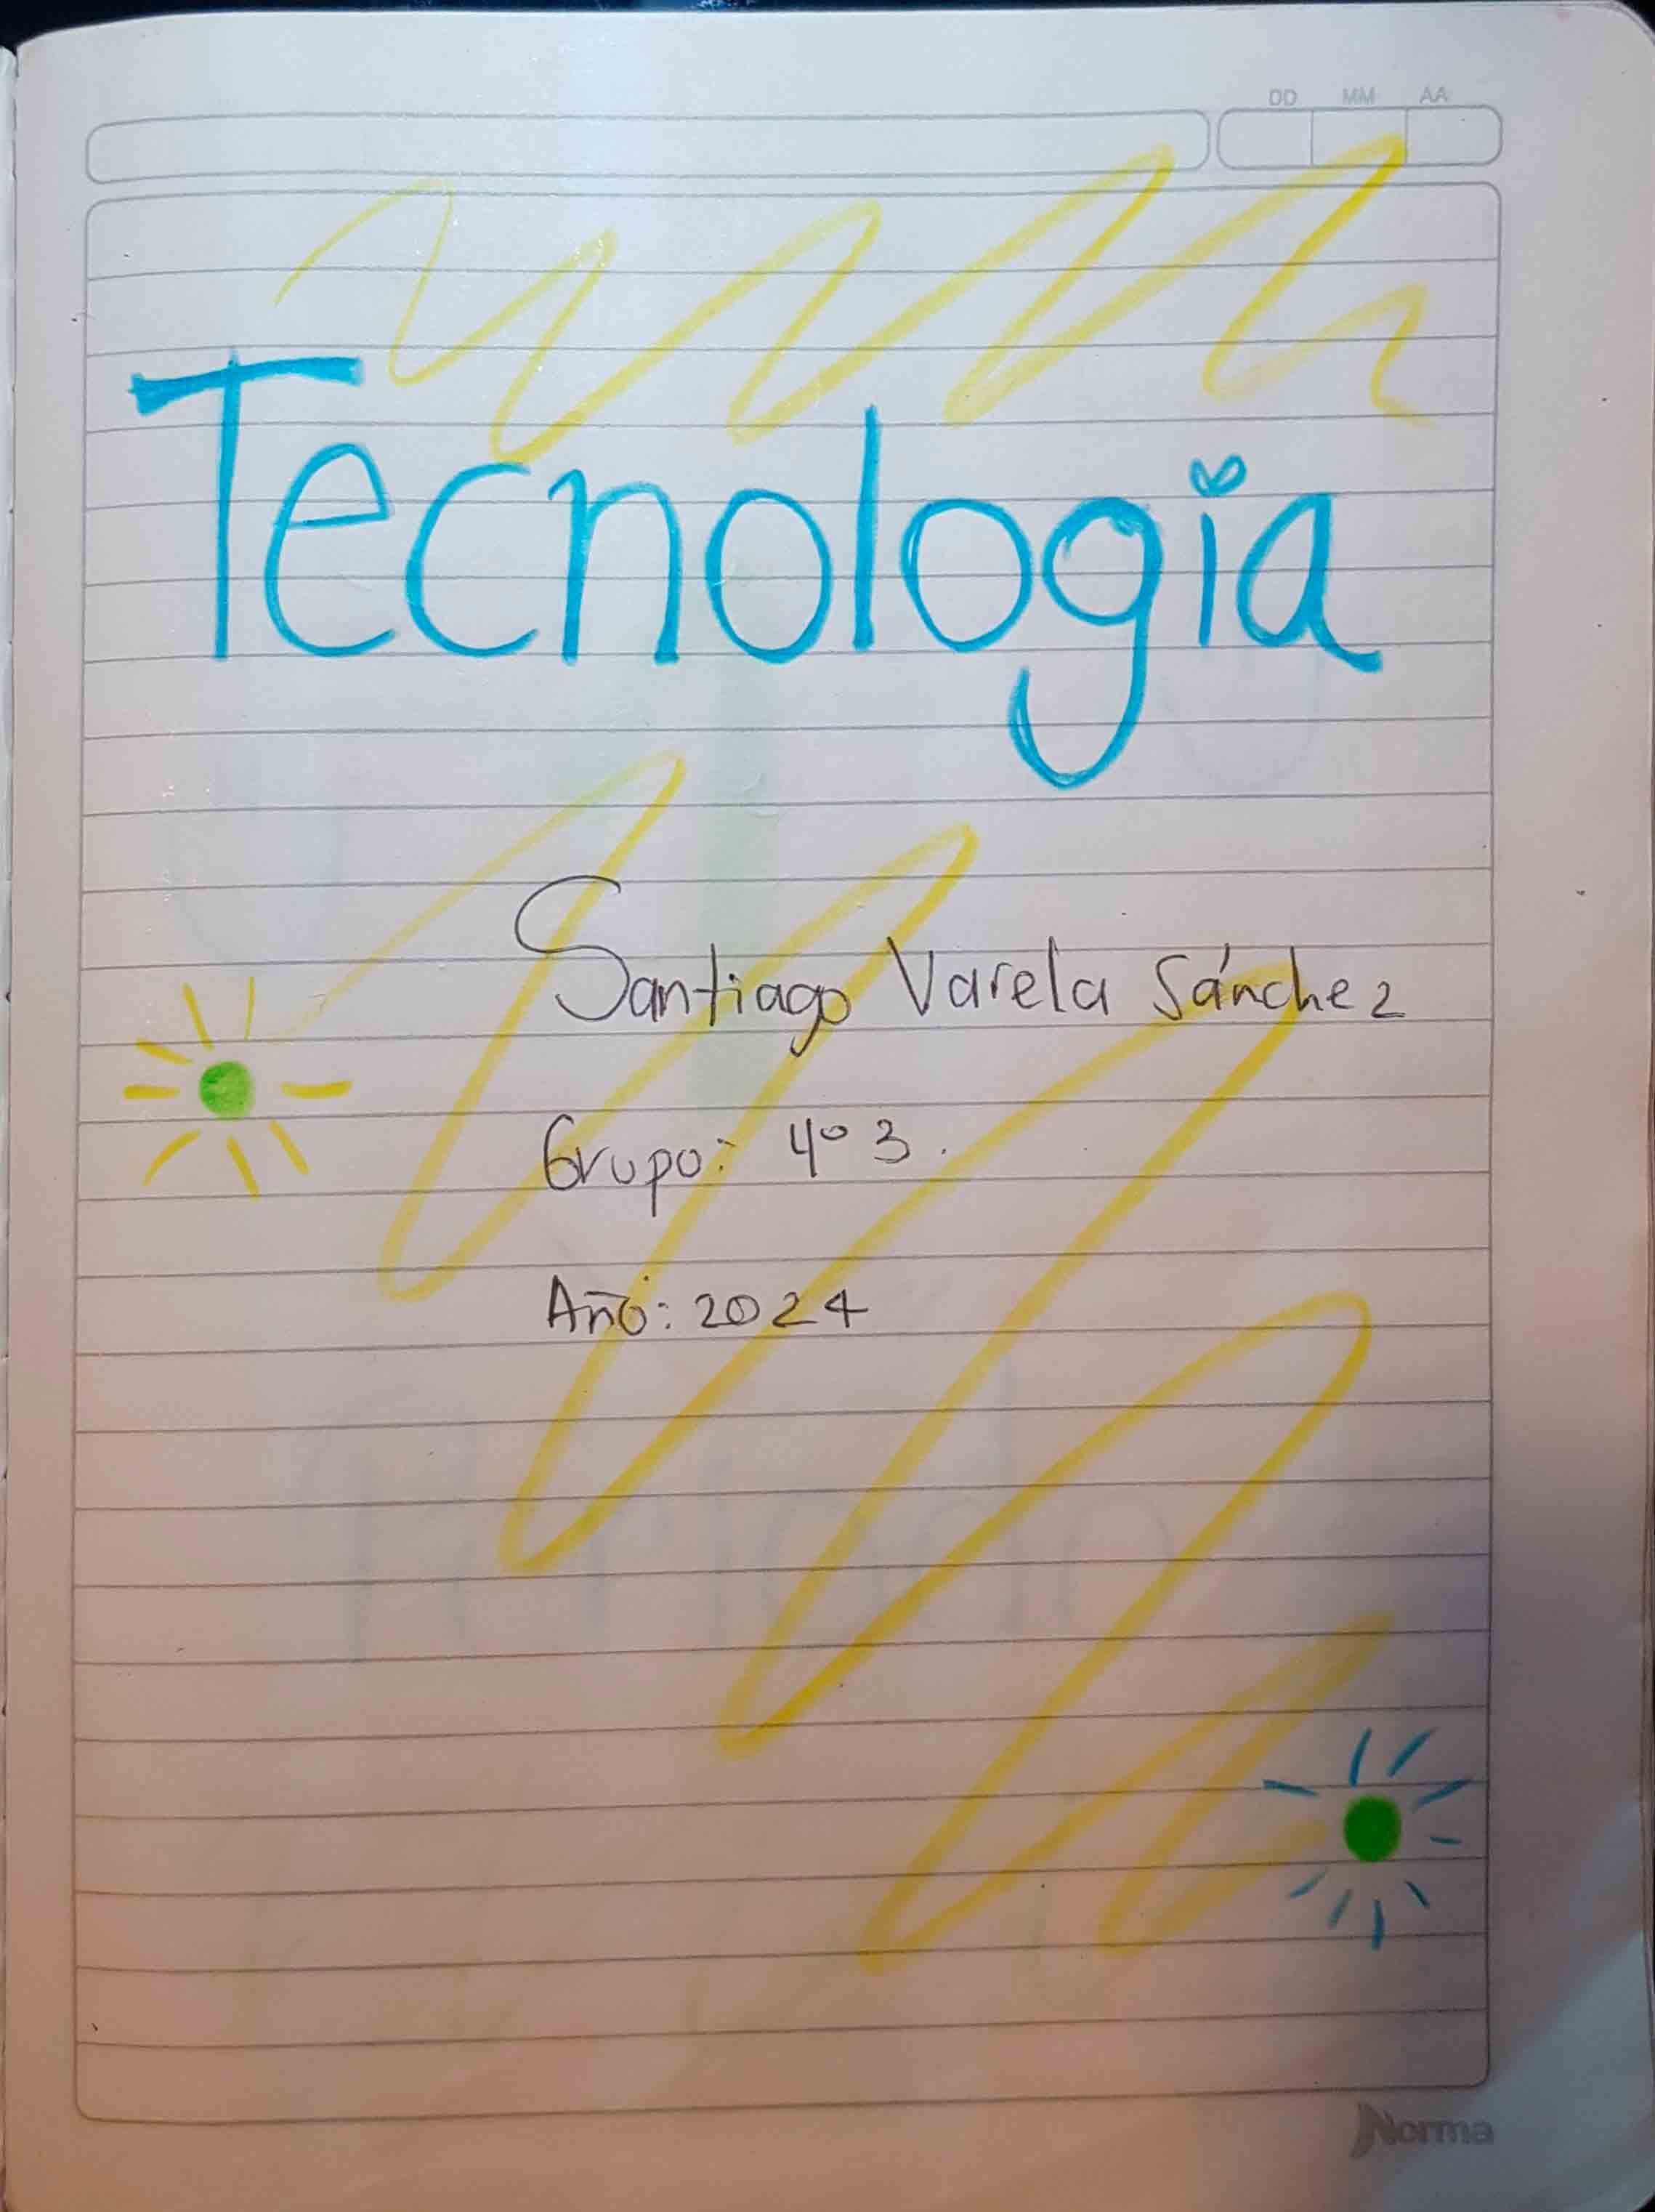 DD MM AA
Tecnologia
Santiago Varela Sánchez
Grupo: 4° 3.
Año: 2024
Norma